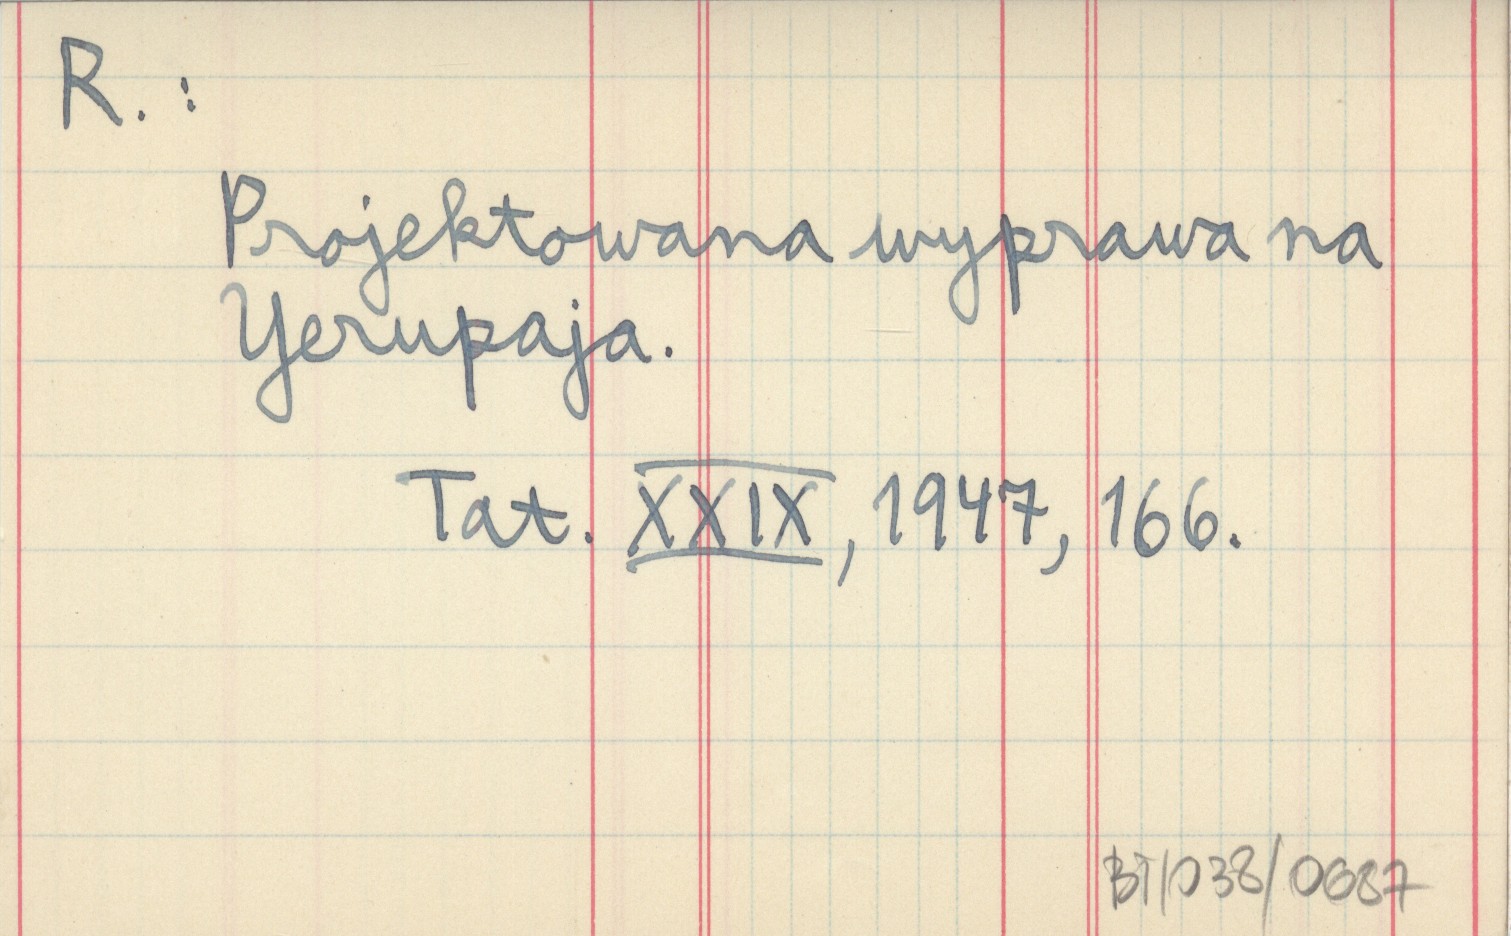 R. :
Projektowana wyprawa na
Yerupaja.
Tat. XXIX, 1947, 166.
BT/038/0687